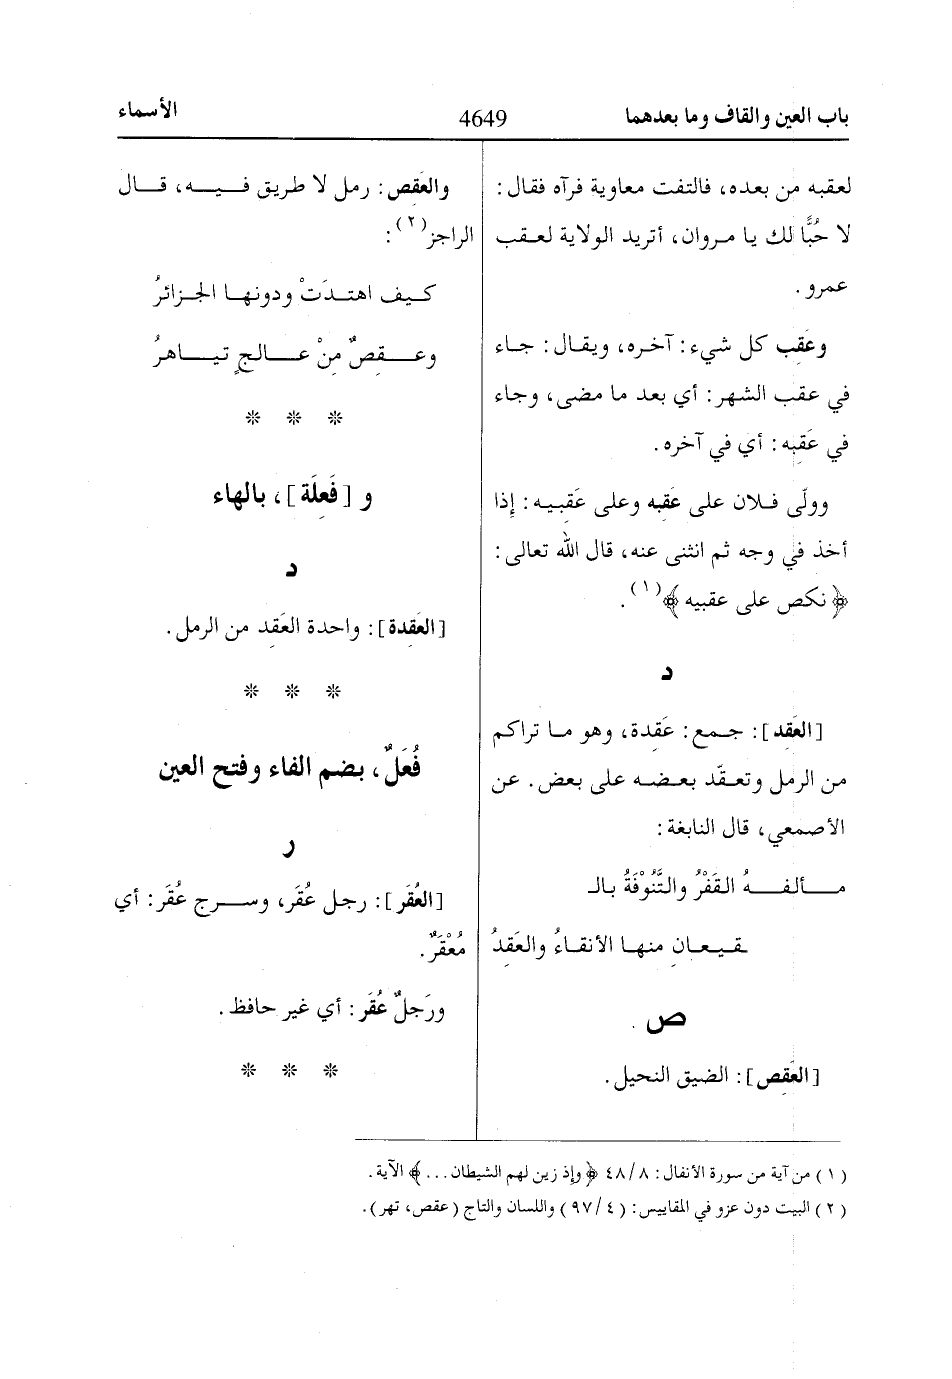 باب العين والقاف وما بعدهما
4649
الأسماء
لعقبه من بعده، فالتفت معاوية فرآه فقال:
لا حُبًّا لك يا مروان، أتريد الولاية لعقب
عمرو.
وعَقِب كل شيء: آخره، ويقال: جاء
في عقب الشهر: أي بعد ما مضى، وجاء
في عَقِبه: أي في آخره.
وولّى فلان على عَقِبه وعلى عَقِبيه: إذا
أخذ في وجه ثم انثنى عنه، قال الله تعالى:
﴿نكص على عقبيه﴾(١).
د
[العَقِد]: جمع: عَقِدة، وهو ما تراكم
من الرمل وتعقّد بعضه على بعض. عن
الأصمعي، قال النابغة:
مألفهُ القَفْرُ والتَّنُوْفَةُ بالـ
ـقيعان منها الأنقاءُ والعَقِدُ
ص
[العَقِص]: الضيق النحيل.
والعَقِص: رمل لا طريق فيه، قال
الراجز(٢):
كيف اهتدَتْ ودونها الجزائرُ
وعقصٌ مِنْ عالجٍ تياهرُ
* * *
و [فَعِلَة]، بالهاء
د
[العَقِدة]: واحدة العَقِد من الرمل.
* * *
فُعَلٌ، بضم الفاء وفتح العين
ر
[العُقَر]: رجل عُقَر، وسرج عُقَر: أي
مُعْقَرٌ.
ورَجلٌ عُقَر: أي غير حافظ.
* * *
(١) من آية من سورة الأنفال: ٨/ ٤٨ ﴿وإذ زين لهم الشيطان...﴾ الآية.
(٢) البيت دون عزو في المقاييس: (٤/ ٩٧) واللسان والتاج (عقص، تهر).